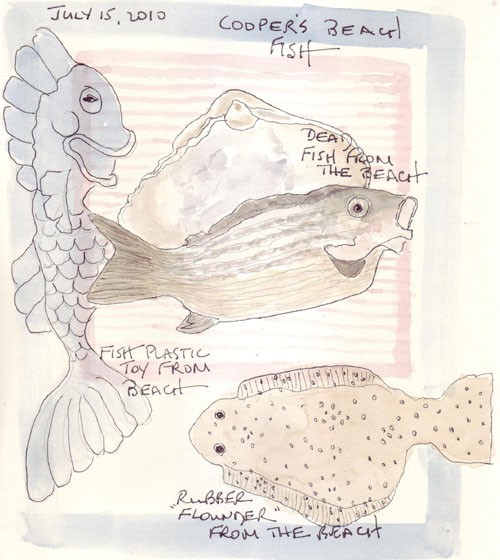 JULY 15, 2010
COOPER'S BEACH
FISH
DEAD
FISH FROM
THE BEACH
FISH PLASTIC
TOY FROM
BEACH
"RUBBER
FLOUNDER"
FROM THE BEACH